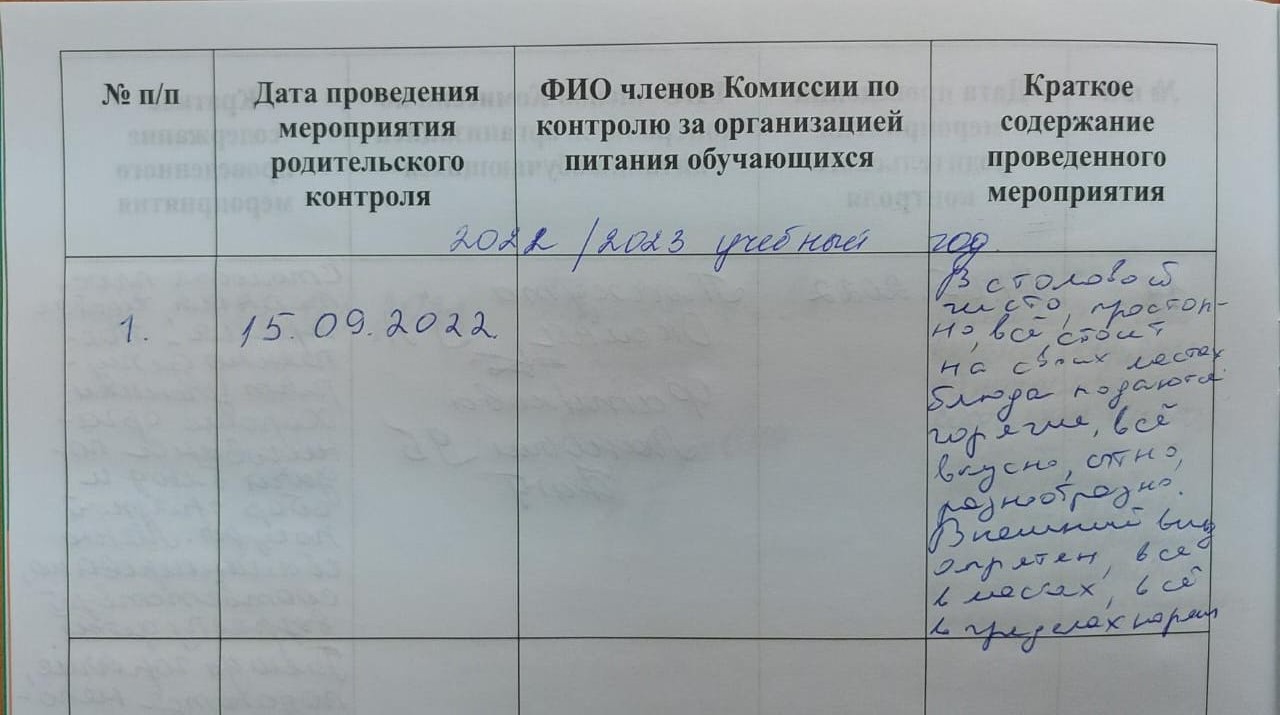 № п/п
Дата проведения
мероприятия
родительского
контроля
ФИО членов Комиссии по
контролю за организацией
питания обучающихся
Краткое
содержание
проведенного
мероприятия
2022 /2023 учебный год
1.
15.09.2022.
В столовой
чисто, простор-
но, всё стоит
на своих местах
блюда подаются
горячие, всё
вкусно, сытно,
разнообразно.
Внешний вид
опрятен, все
в масках, всё
в пределах нормы